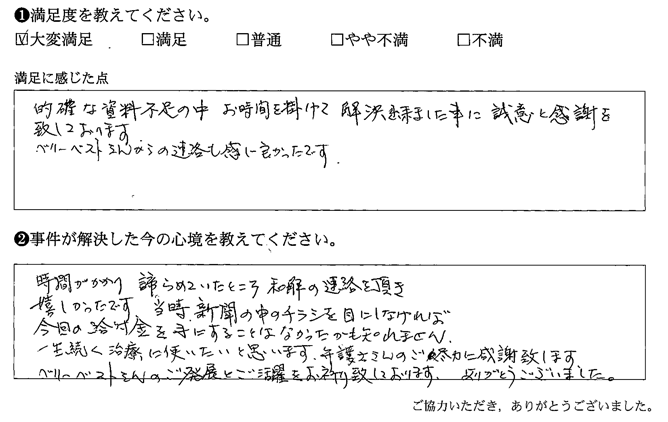 ❶満足度を教えてください。
☑大変満足 □満足 □普通 □やや不満 □不満
満足に感じた点
的確な資料不足の中 お時間を掛けて 解決出来ました事に 誠意と感謝を
致しております
ベリーベストさんからの連絡も感じ良かったです.
❷事件が解決した今の心境を教えてください。
時間がかかり 諦らめていたところ 和解の連絡を頂き
嬉しかったです 当時 新聞の中のチラシを目にしなければ
今回の給付金を手にすることはなかったかも知れません.
一生続く治療に使いたいと思います. 弁護士さんのご尽力に感謝致します
ベリーベストさんのご発展とご活躍をお祈り致しております. ありがとうございました。
ご協力いただき，ありがとうございました。